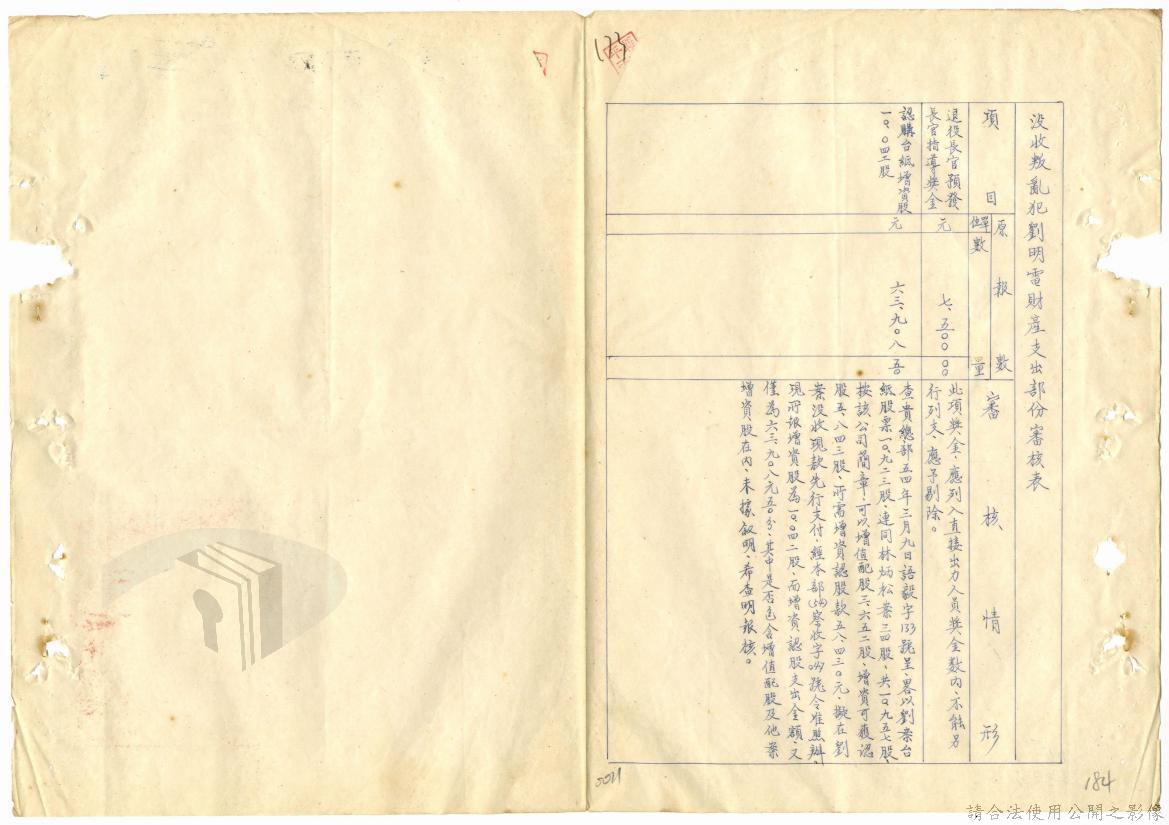 沒收叛亂犯劉明電財產支出部份審核表
項目
原報數
單位
數量
審核情形
退役長官預發
長官指導獎金
元
七、五〇〇 〇〇
此項獎金,應列入直接出力人員獎金數內,不能另
行列支,應予剔除。
認購台紙增資股
一〇、〇四二股
元
六三、九〇八 五〇
查貴總部五四年三月九日語毅字133號呈,畧以劉案台
紙股票一〇、九二三股,連同林炳松案三四股,共一〇、九五七股,
按該公司簡章,可以增值配股三、六五二股,增資可獲認
股五、八四三股,所需增資認股款五八、四三〇元,擬在劉
案沒收現款先行支付,經本部(54)察收字 號令准照辦,
現所報增資股為一〇、〇四二股,而增資認股支出金額,又
僅為六三、九〇八元五〇分,其中是否包含增值配股及他案
增資股在內,未據叙明,希查明報核。
184
請合法使用公開之影像